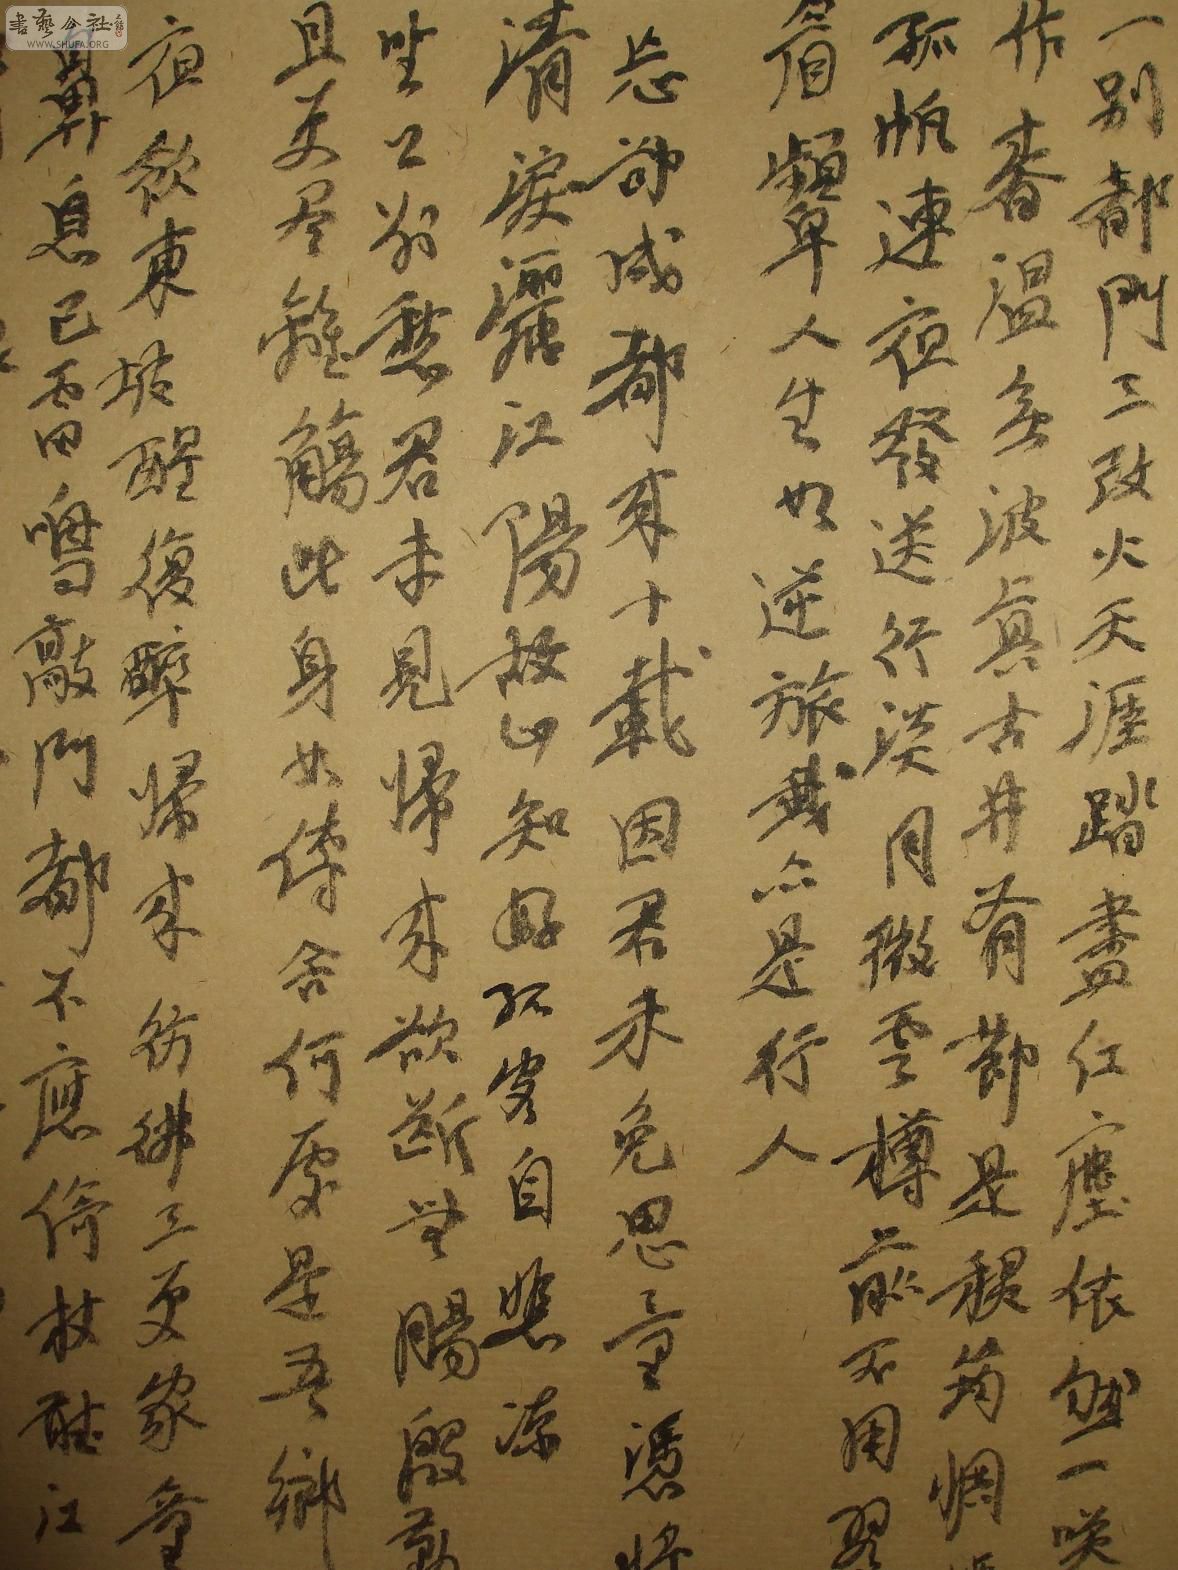 一別都門三改火天涯踏盡紅塵依然一笑
作春溫無波真古井有節是秋筠惆
孤帆連夜發送行淡月微雲樽前不用翠
眉顰人生如逆旅我亦是行人
忘卻成都來十載因君未免思量憑將
清淚灑江陽故山知好孤客自悲凉
坐上別愁君未見歸來欲斷無腸殷勤
且更尽離觴此身如傳舍何處是吾鄉
夜飲東坡醒復醉歸來彷彿三更家童
鼻息已雷鳴敲門都不應倚杖聽江
書藝公社
WWW.SHUFA.ORG